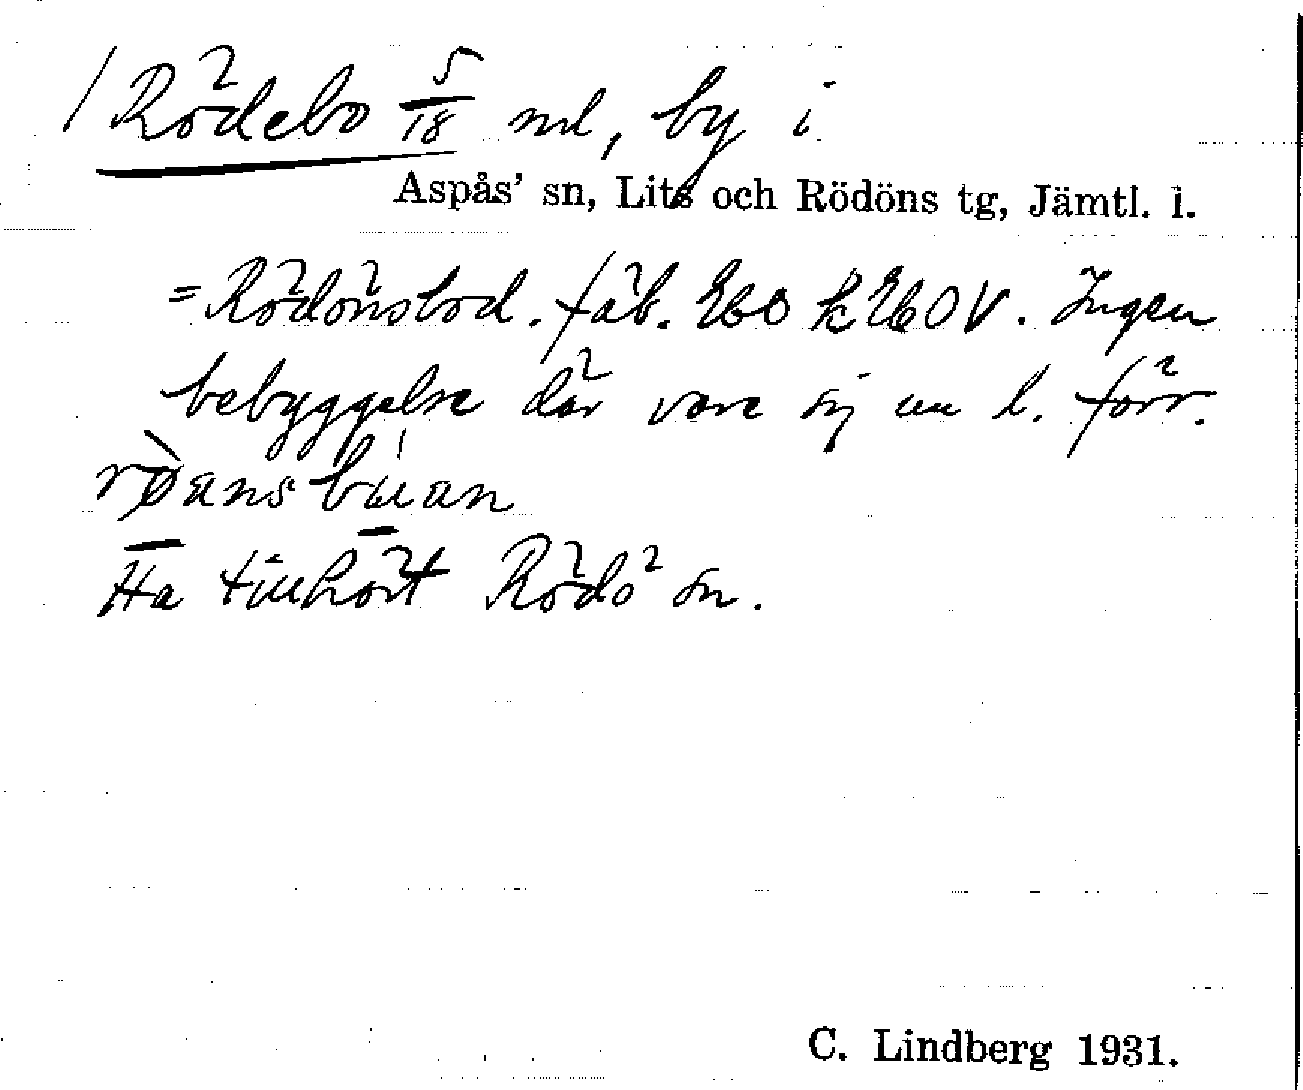 / Rödebo 5/18 ml, by i
Aspås' sn, Lits och Rödöns tg, Jämtl. l.
= Rödönsbod. fäb. Eko k EkoV. Ingen
bebyggelse där vare sig nu l. förr.
Ha tillhört Rödö sn.
C. Lindberg 1931.